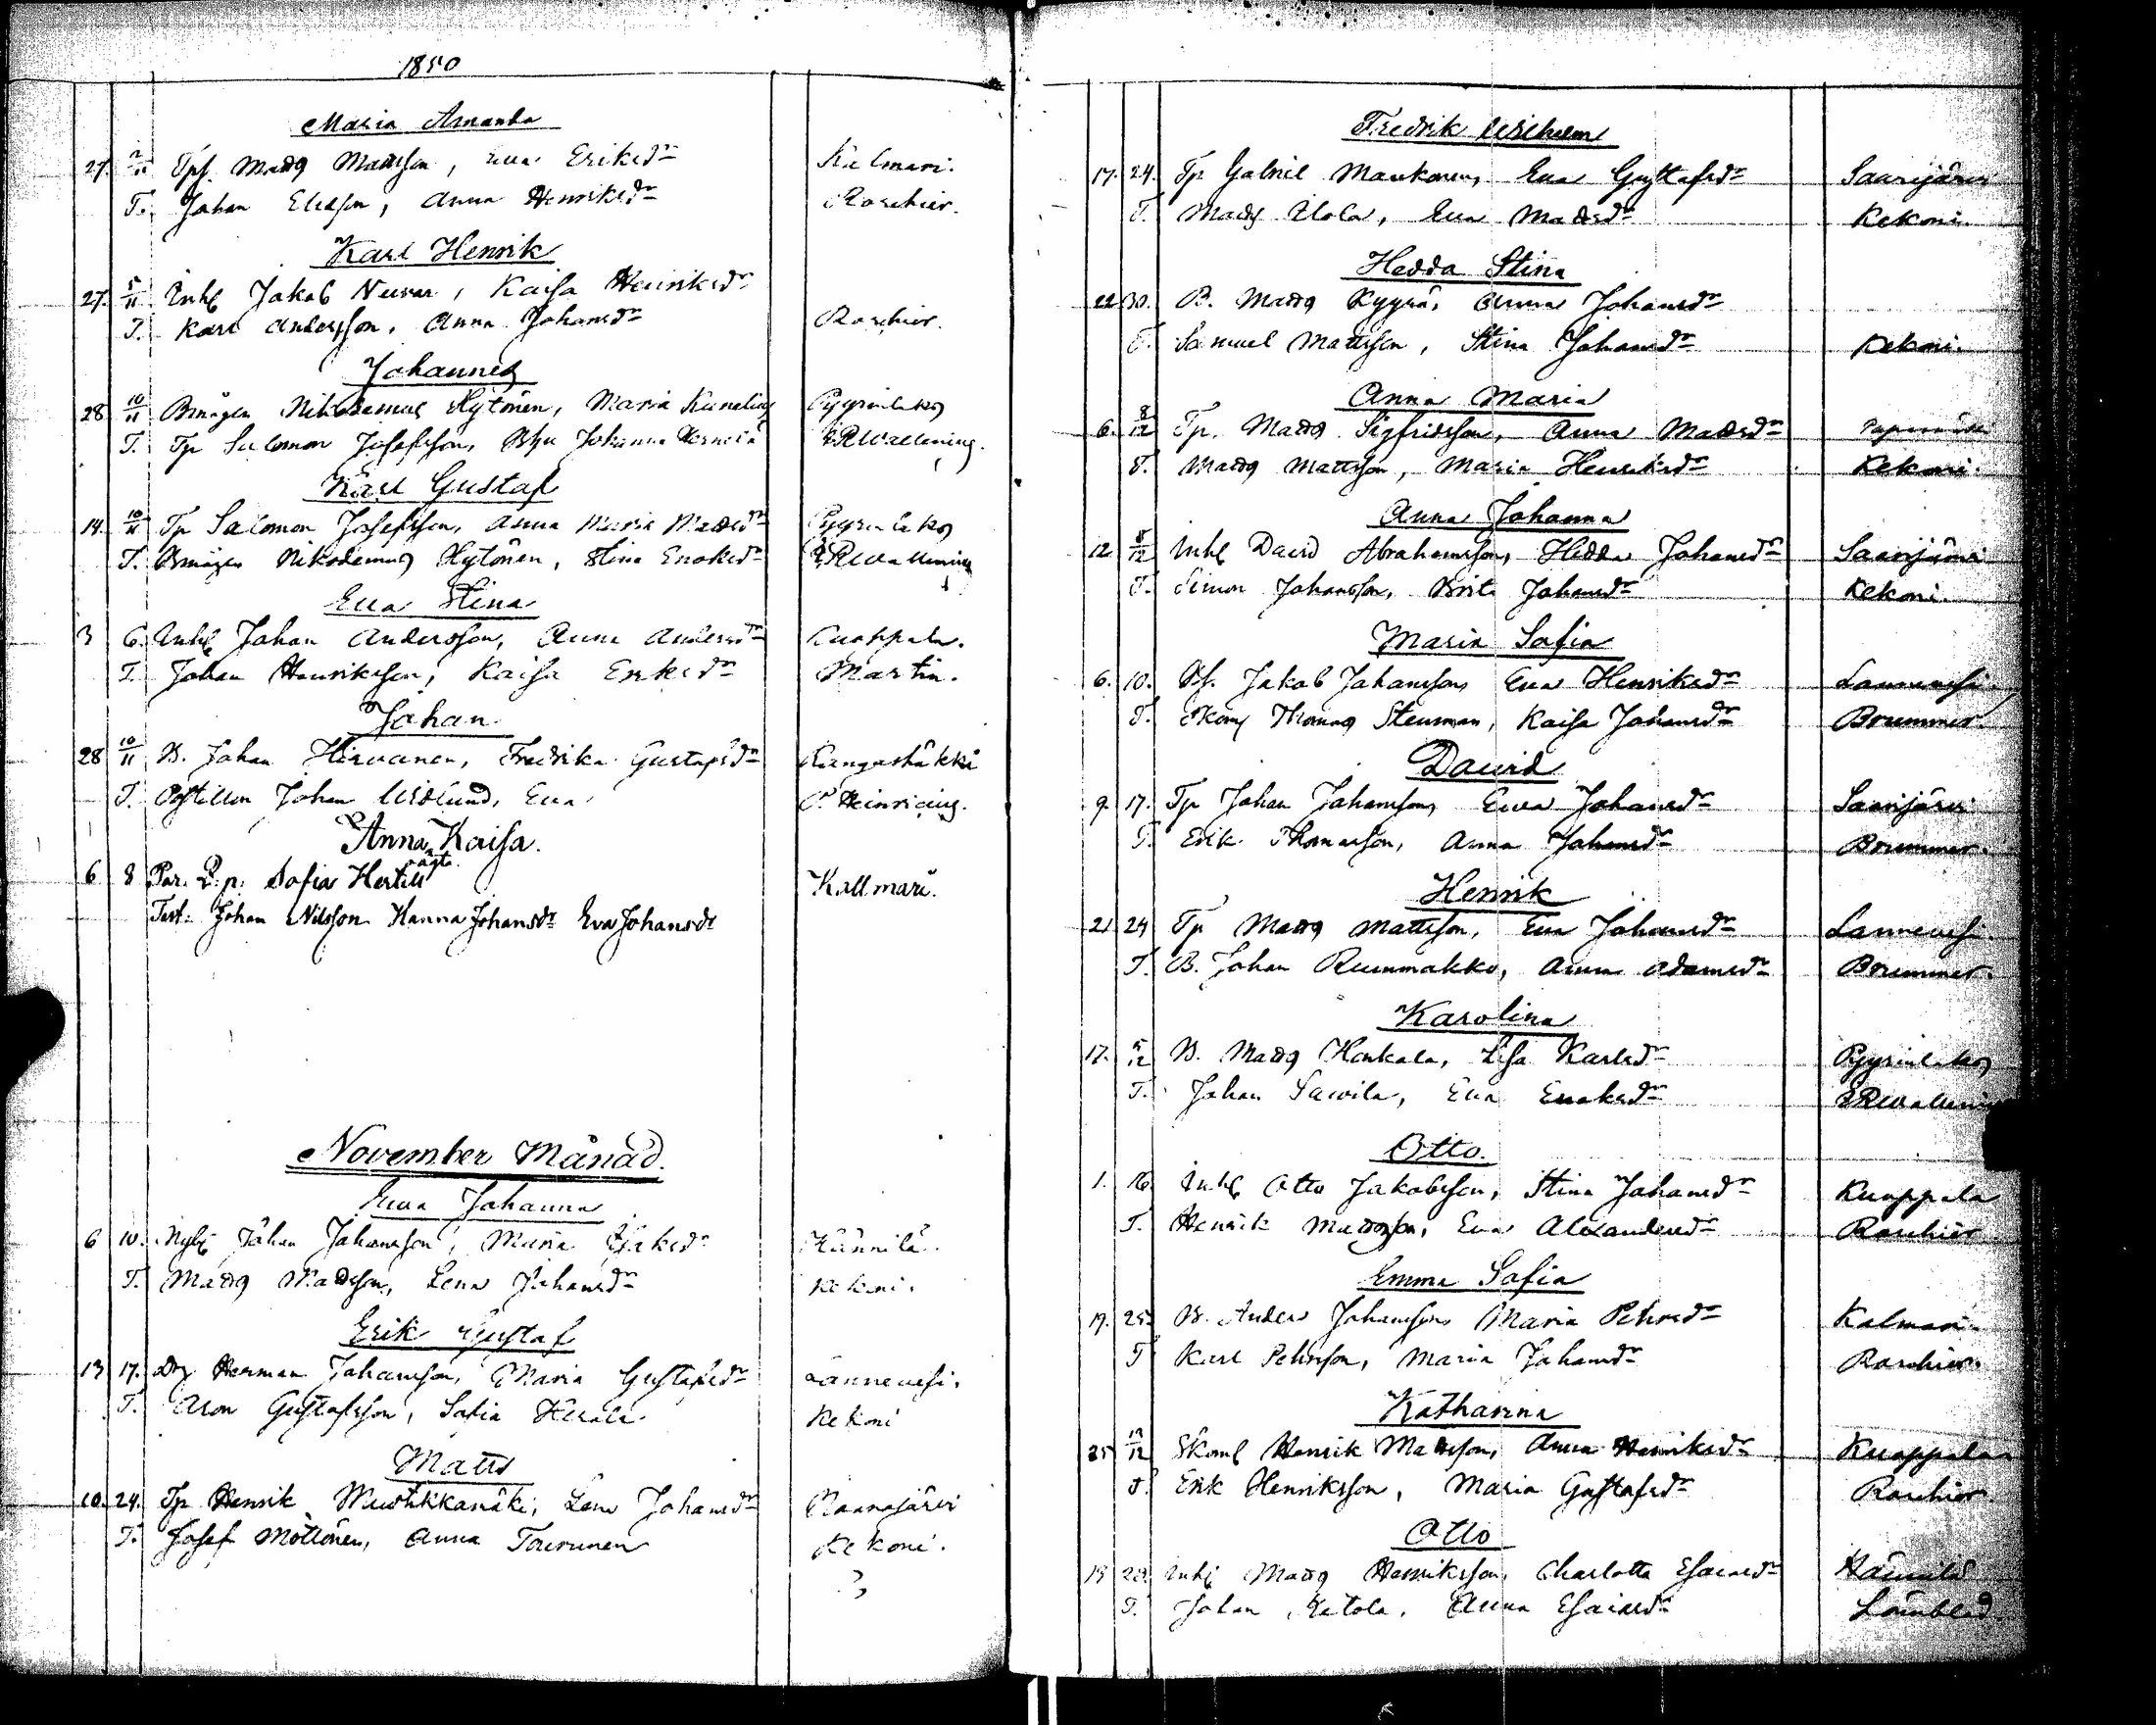 1850
Maria Amanda
27. 2/11 Tps. Matts Mattsson, Eva Eriksdr Kalmari.
T. Johan Eliasson, Anna Henriksdr Roschier.
Karl Henrik
27. 5/11 Inh. Jakob Kaisa Henriksdr
T. Karl Andersson, Anna Johansdr Roschier.
Johannes
28 10/11 Nikodemus Hytönen, Maria Pyyrinlaks
T. Tp Salomon Josefsson, Johanna Wallenius.
Karl Gustaf
14. 10/11 Tp Salomon Josefsson, Anna Maria Mattsdr Pyyrinlaks
T. Nikodemus Hytönen, Stina Enoksdr Wallenius
Eva Stina
3 6. Inh. Johan Andersson, Anna Andersdr Kuoppala.
T. Johan Henriksson, Kaisa Eriksdr Martin.
Johan
28 10/11 B. Johan Hirvanen, Fredrika Gustafsdr Kangashäkki
T. Postillon Johan Widlund, Eva P. Heinricius.
Anna Kaisa.
6 8 Par. Sofia Hertill Kallmari.
Test: Johan Nilsson Hanna Johansdr Eva Johansdr
November Månad.
Eva Johanna
6 10. Nyb. Johan Johansson, Maria Isaksdr Hännilä.
T. Matts Mattsson, Lena Johansdr Kekoni.
Erik Gustaf
13 17. Drg Herman Johansson, Maria Gustafsdr Lannevesi.
T. Aron Gustafsson, Sofia Kekoni
Matts
10. 24. Tp Henrik Lena Johansdr Naarajärvi
T. Josef Möttönen, Anna Tourunen Kekoni.
Fredrik Wilhelm
17. 24. Tp Gabriel Mankonen, Eva Gustafsdr Saarijärvi
T. Matts Ulola, Eva Mattsdr Kekoni.
Hedda Stina
22 30. B. Matts Kyyrä, Anna Johansdr
T. Samuel Mattsson, Stina Johansdr Kekoni.
Anna Maria
6. 8/12 Tp. Matts Sigfridsson, Anna Mattsdr
T. Matts Mattsson, Maria Henriksdr Kekoni.
Anna Johanna
12 8/12 Inh. David Abrahamsson, Hedda Johansdr Saarijärvi
T. Simon Johansson, Brita Johansdr Kekoni.
Maria Sofia
6. 10. Jakob Johansson, Eva Henriksdr Lannevesi.
T. Skom. Thomas Stenman, Kaisa Johansdr Brummer.
David
9 17. Tp Johan Johansson, Eva Johansdr Saarijärvi
T. Erik Thomasson, Anna Johansdr Brummer.
Henrik
21 24 Tp Matts Mattsson, Eva Johansdr Lannevesi.
T. B. Johan Rummakko, Anna Adamsdr Brummer.
Karolina
17. 5/12 B. Matts Honkala, Lisa Karlsdr Pyyrinlaks
T. Johan Savila, Eva Enoksdr Wallenius
Otto.
1. 16 Inh. Otto Jakobsson, Stina Johansdr Kuoppala
T. Henrik Mattsson, Eva Alexandersdr Roschier
Emma Sofia
19. 25. B. Anders Johansson Maria Pehrsdr Kalmari.
T Karl Pehrsson, Maria Johansdr Roschier.
Katharina
25 Skom. Henrik Mattsson, Anna Henriksdr Kuoppala
T. Erik Henriksson, Maria Gustafsdr Roschier.
Otto
19 29. Inh. Matts Henriksson, Charlotta Esaiasdr Hännilä
T. Johan Ketola, Anna Esaiasdr Lönnblad.